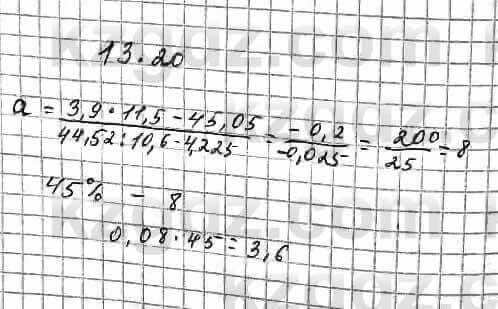 13.20
a = (3,9 · 11,5 - 45,05) / (44,52 : 10,6 - 4,225) = (-0,2) / (-0,025) = 200 / 25 = 8
45% - 8
0,08 · 45 = 3,6